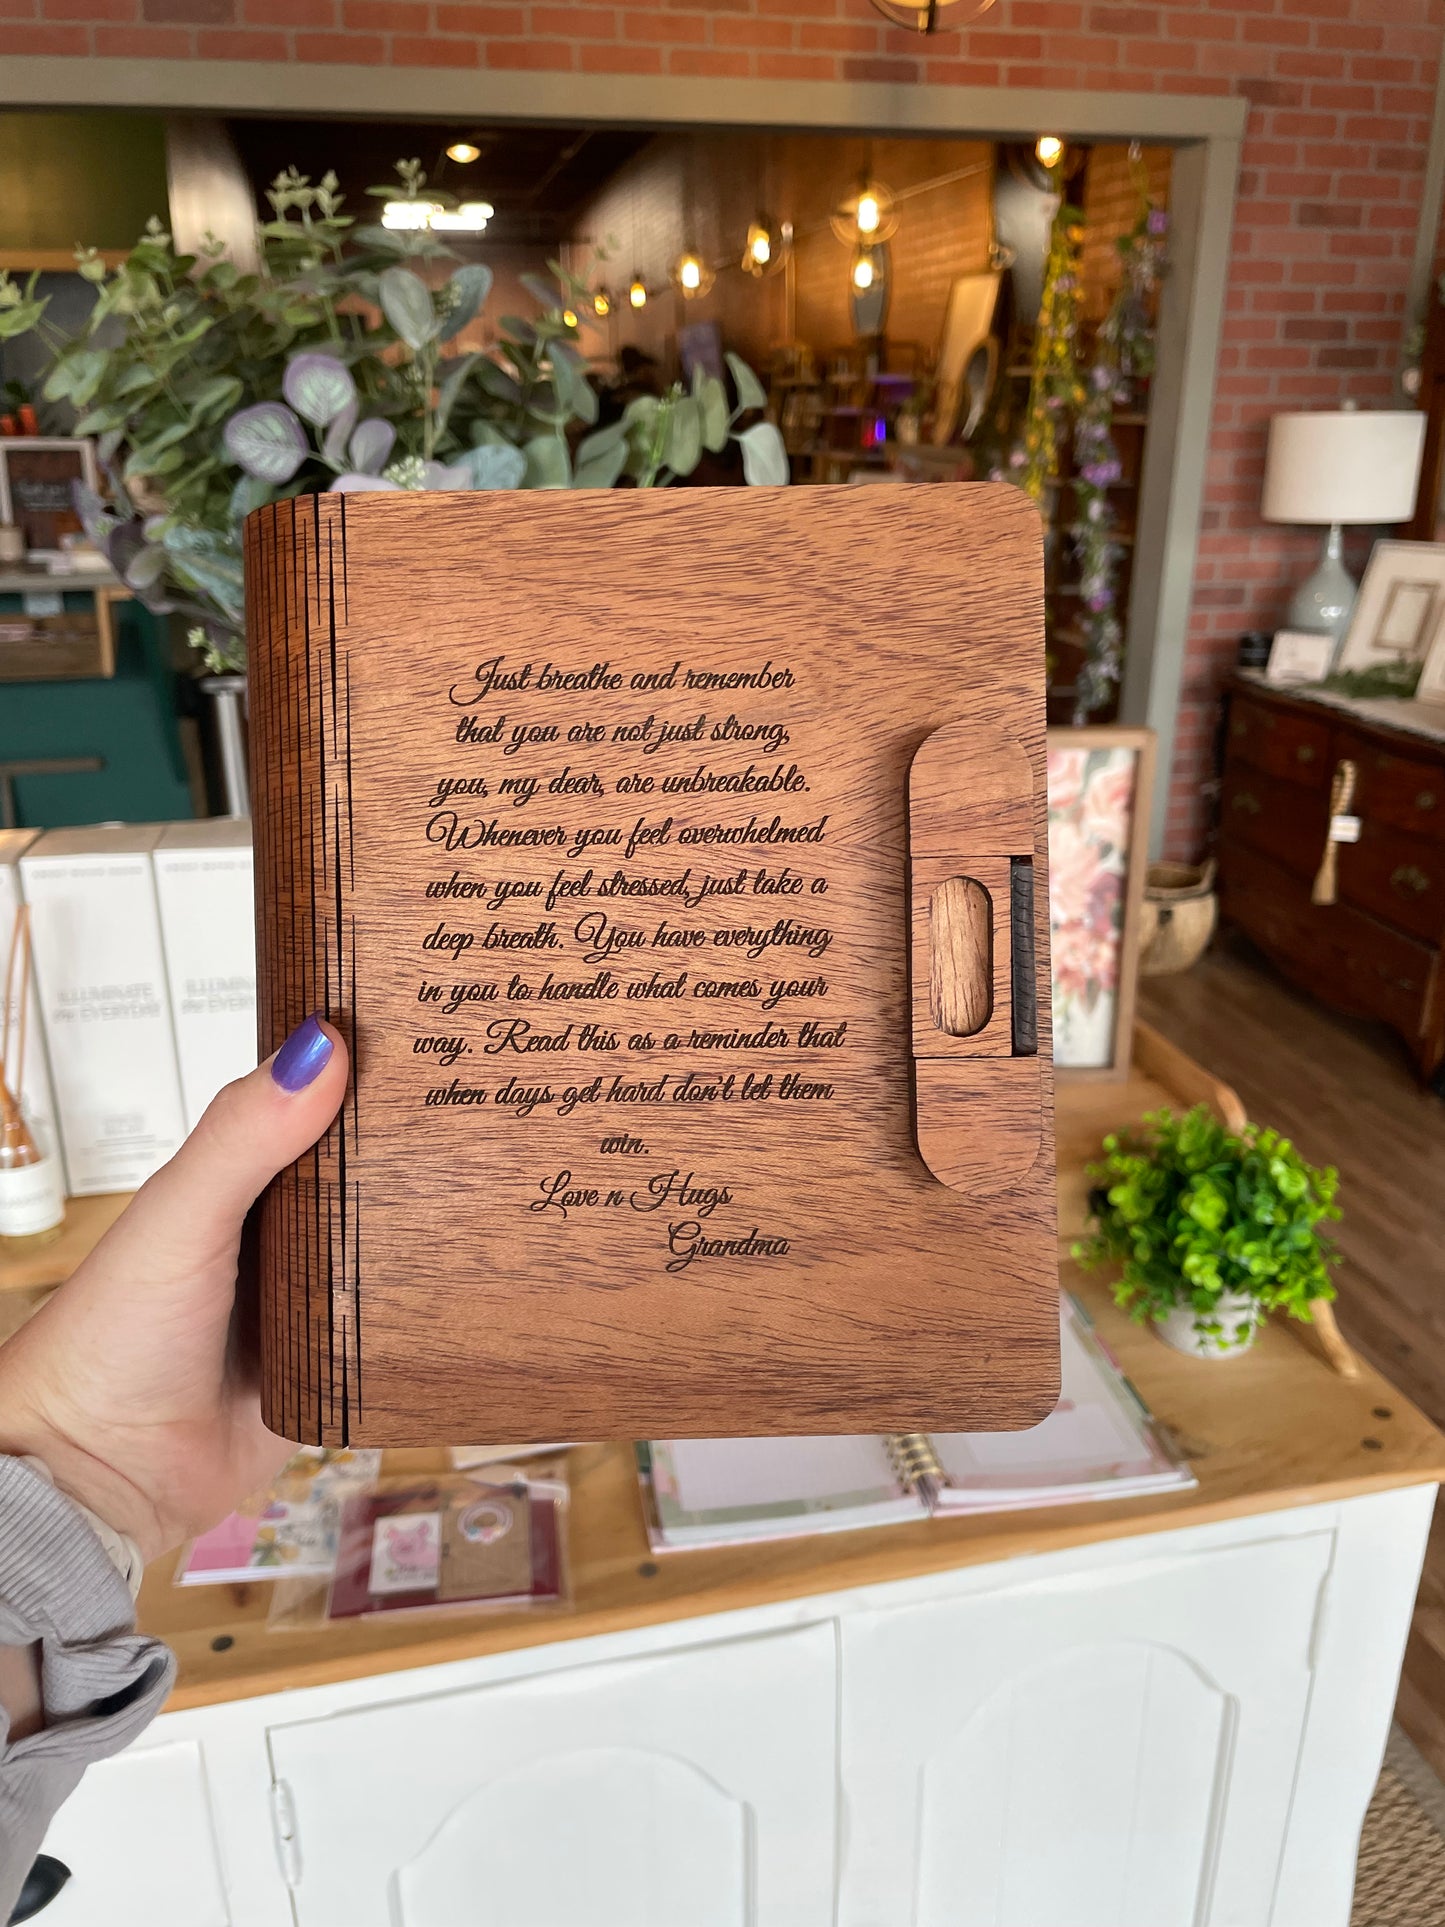 Just breathe and remember
that you are not just strong,
you, my dear, are unbreakable.
Whenever you feel overwhelmed
when you feel stressed, just take a
deep breath. You have everything
in you to handle what comes your
way. Read this as a reminder that
when days get hard don't let them
win.
Love n Hugs
Grandma
ILLUMINATE
the EVERYDAY
ILLUMINATE
the EVERYDAY